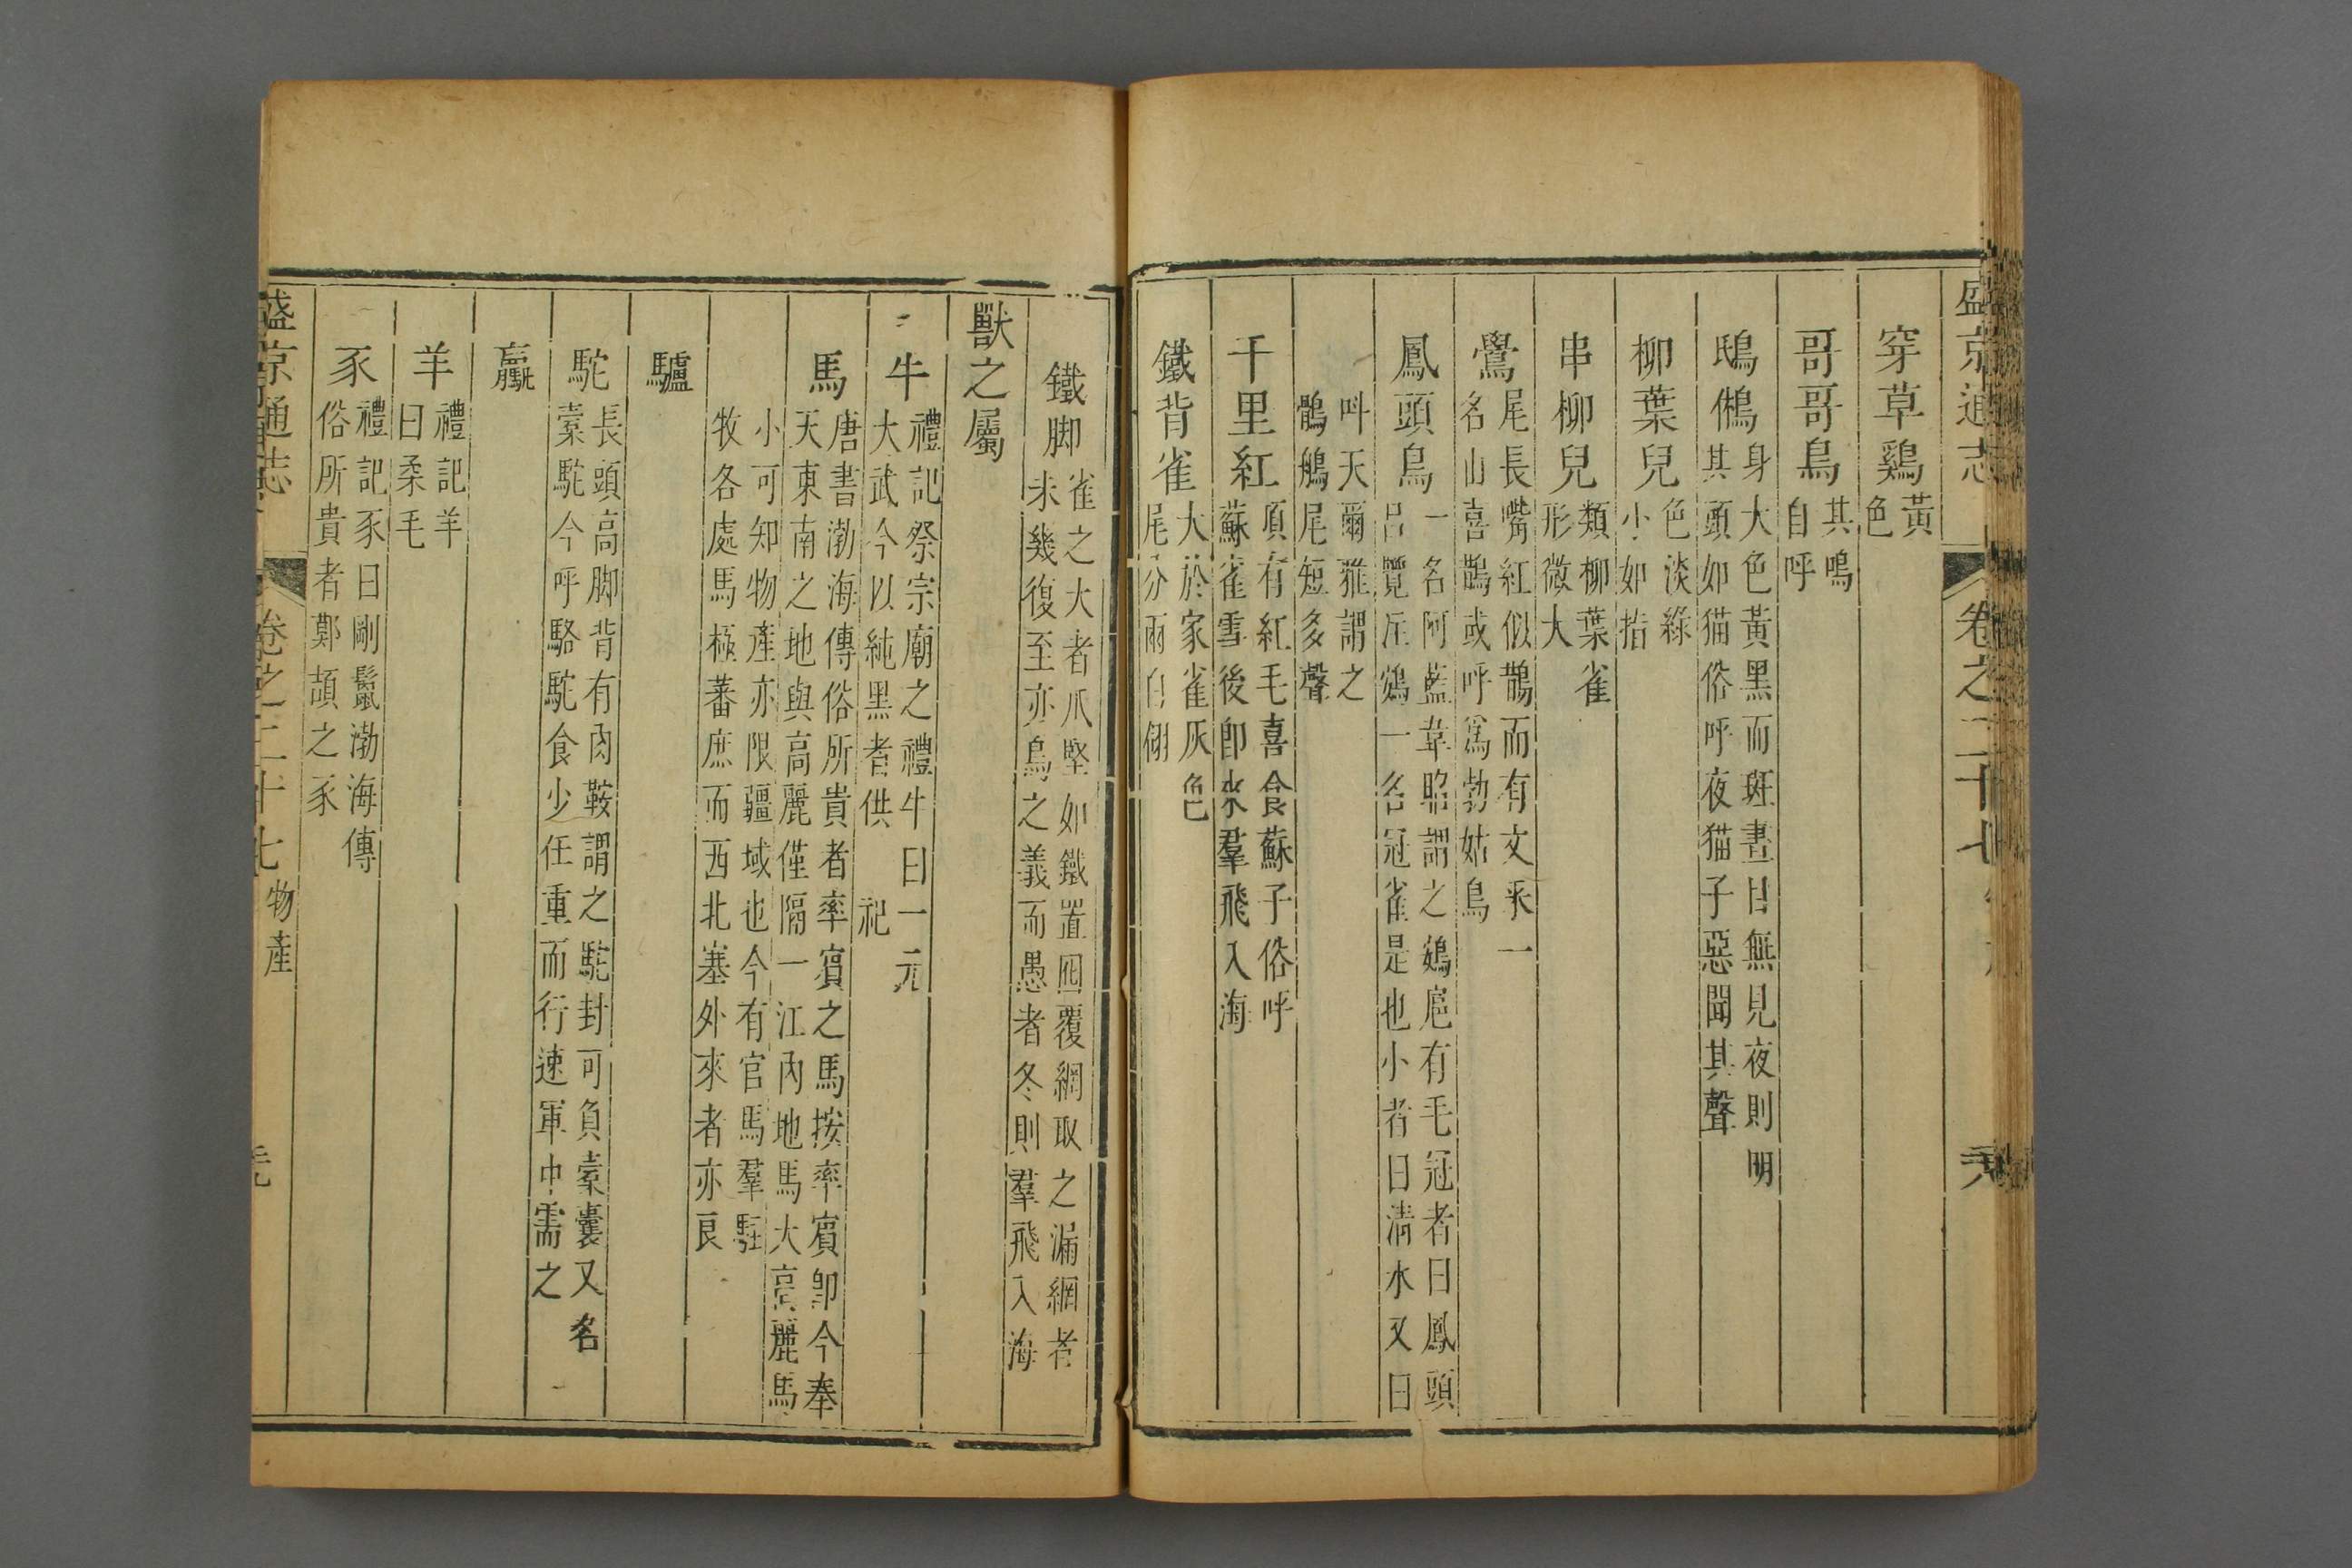 盛京通志 卷之二十七
穿草鷄黃色
哥哥鳥其鳴自呼
鴟鵂身大色黃黑而斑晝目無見夜則明其頭如猫俗呼夜猫子惡聞其聲
柳葉兒色淡綠小如指
串柳兒類柳葉雀形微大
鸒尾長嘴紅似鵲而有文采一名山喜鵲或呼爲勃姑鳥
鳳頭鳥一名阿藍韋昭謂之鴳扈有毛冠者曰鳳頭呂覽注鴳一名冠雀是也小者曰淸水又曰
呌天爾雅謂之鶻鵃尾短多聲
千里紅頂有紅毛喜食蘇子俗呼蘇雀雪後卽來羣飛入海
鐵背雀大於家雀灰色尾分兩白翎
鐵脚雀之大者爪堅如鐵置囮覆網取之漏網者未幾復至亦鳥之義而愚者冬則羣飛入海
獸之屬
牛禮記祭宗廟之禮牛曰一元大武今以純黑者供祀
馬唐書渤海傳俗所貴者率賓之馬按率賓卽今奉天東南之地與高麗僅隔一江內地馬大高麗馬
小可知物產亦限疆域也今有官馬羣駐牧各處馬極蕃庶而西北塞外來者亦良
驢
駝長頭高脚背有肉鞍謂之駝封可負橐囊又名橐駝今呼駱駝食少任重而行速軍中需之
驘
羊禮記羊曰柔毛
豕禮記豕曰剛鬣渤海傳俗所貴者鄭頡之豕
盛京通志 卷之二十七 物產